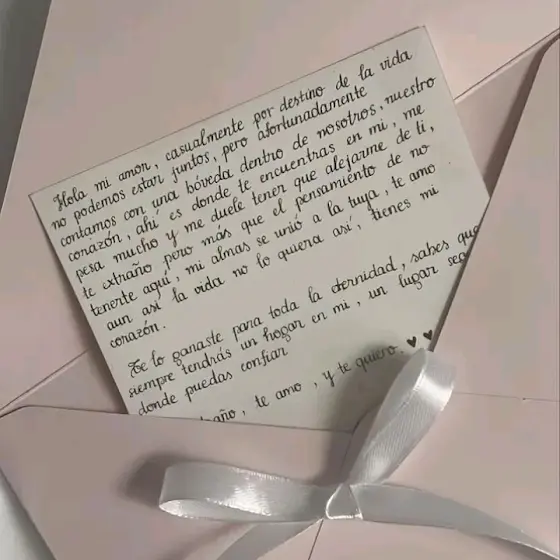 Hola mi amor, casualmente por destino de la vida
no podemos estar juntos, pero afortunadamente
contamos con una bóveda dentro de nosotros, nuestro
corazón, ahí es donde te encuentras en mi, me
pesa mucho y me duele tener que alejarme de ti,
te extraño pero más que el pensamiento de no
tenerte aquí, mi almas se unió a la tuya, te amo
aun así la vida no lo quiera así, tienes mi
corazón.
Te lo ganaste para toda la eternidad, sabes que
siempre tendrás un hogar en mi, un lugar
donde puedas confiar
te amo, y te quiero. ♥ ♥